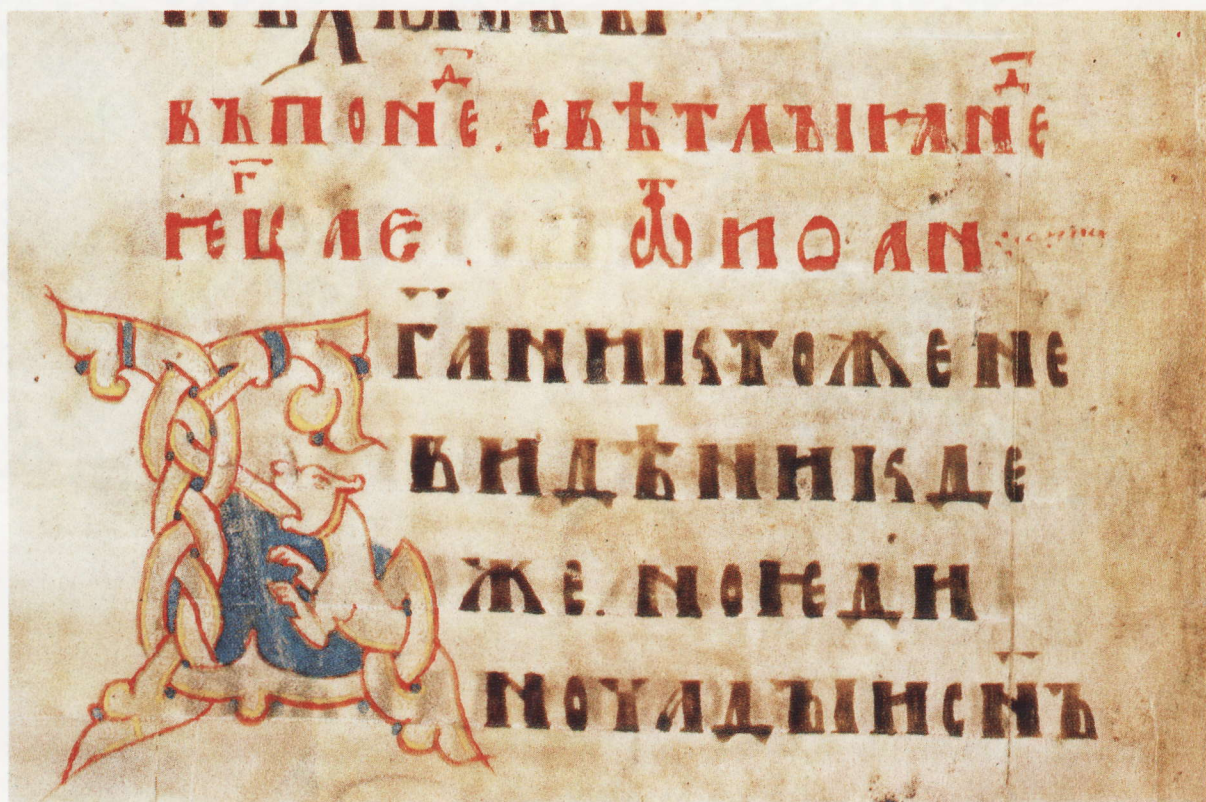 въпонеⷣ. свѣтлъіꙗнеⷣ
ѥⷢцле ѿиоан
Бг҃аниктожене
видѣникде
же. ноѥди
ночадъіисн҃ъ